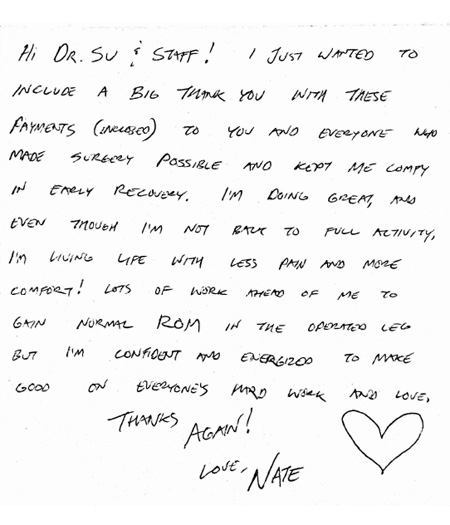 Hi Dr. Su & Staff! I just wanted to
include a big thank you with these
payments (inclosed) to you and everyone who
made surgery possible and kept me comfy
in early recovery. I'm doing great, and
even though I'm not back to full activity,
I'm living life with less pain and more
comfort! Lots of work ahead of me to
gain normal ROM in the operated leg
but I'm confident and energized to make
good on everyone's hard work and love.
Thanks Again!
Love, Nate